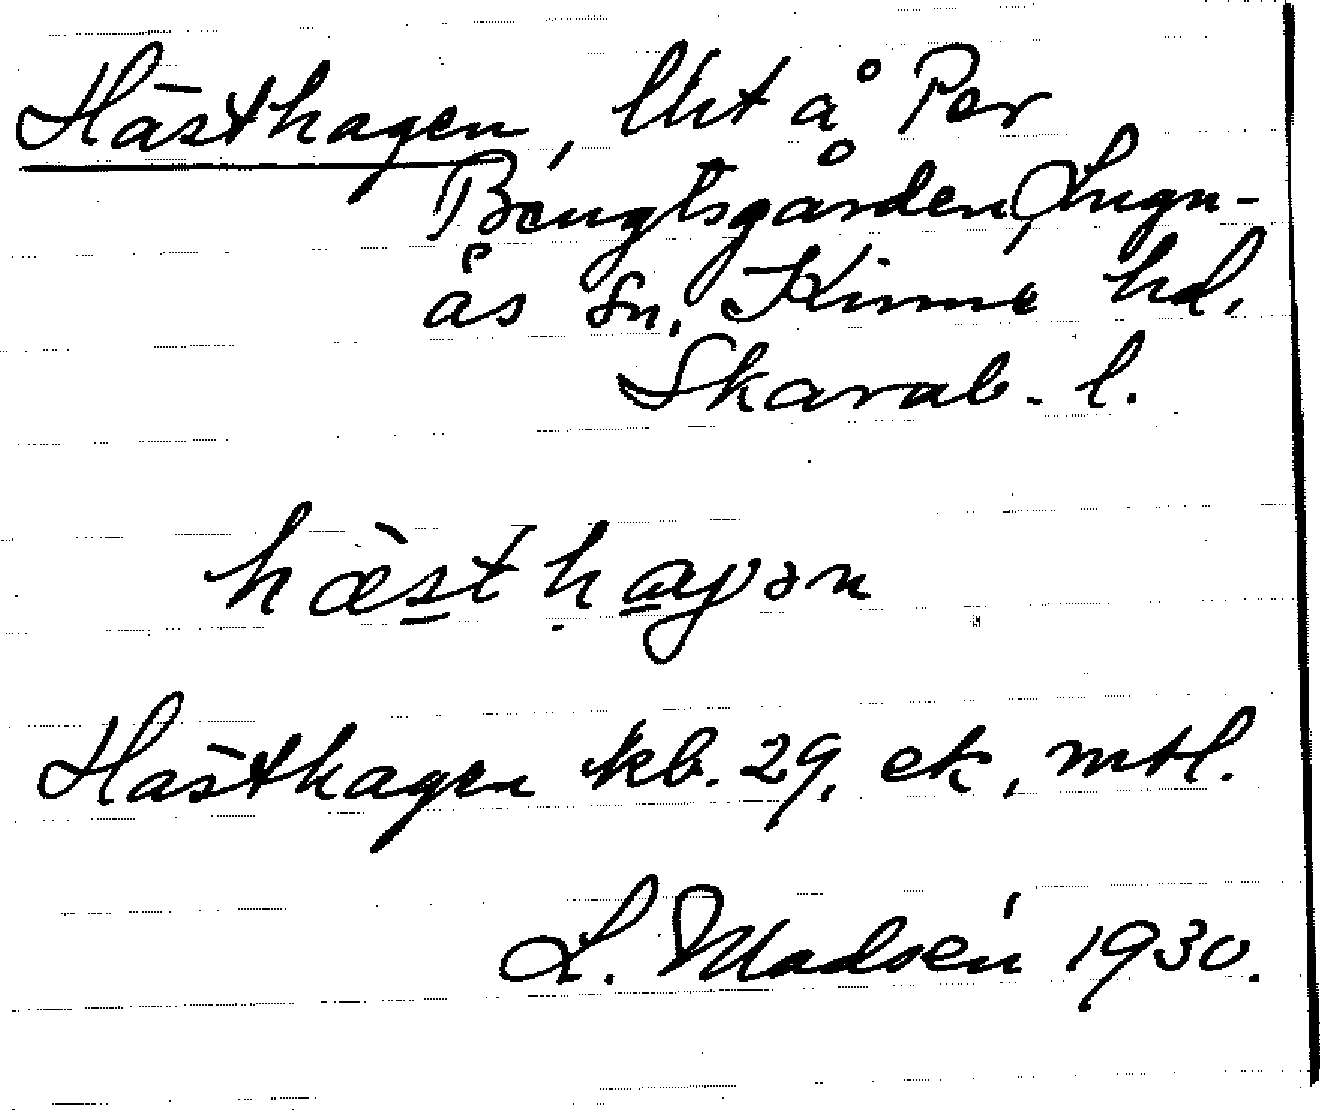 Hästhagen, lht å Per
Bengtsgården, Lugn-
ås sn. Kinne hd.
Skarab. l.
hæ̀sthaγən
Hästhagen kb. 29, ek, mtl.
L. Madsén 1930.